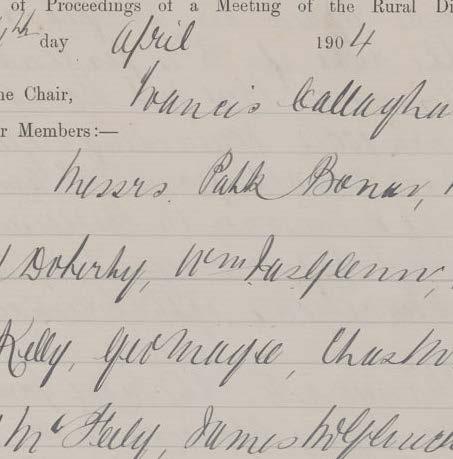 of Proceedings of a Meeting of the Rural Di
th day April 1904
he Chair, Francis Callagha
r Members:—
Messrs. Patk Bonar,
Doherty, Wm Jas Glenn,
Kelly, Geo Magee, Chas
Mc Feely, James McGlinch